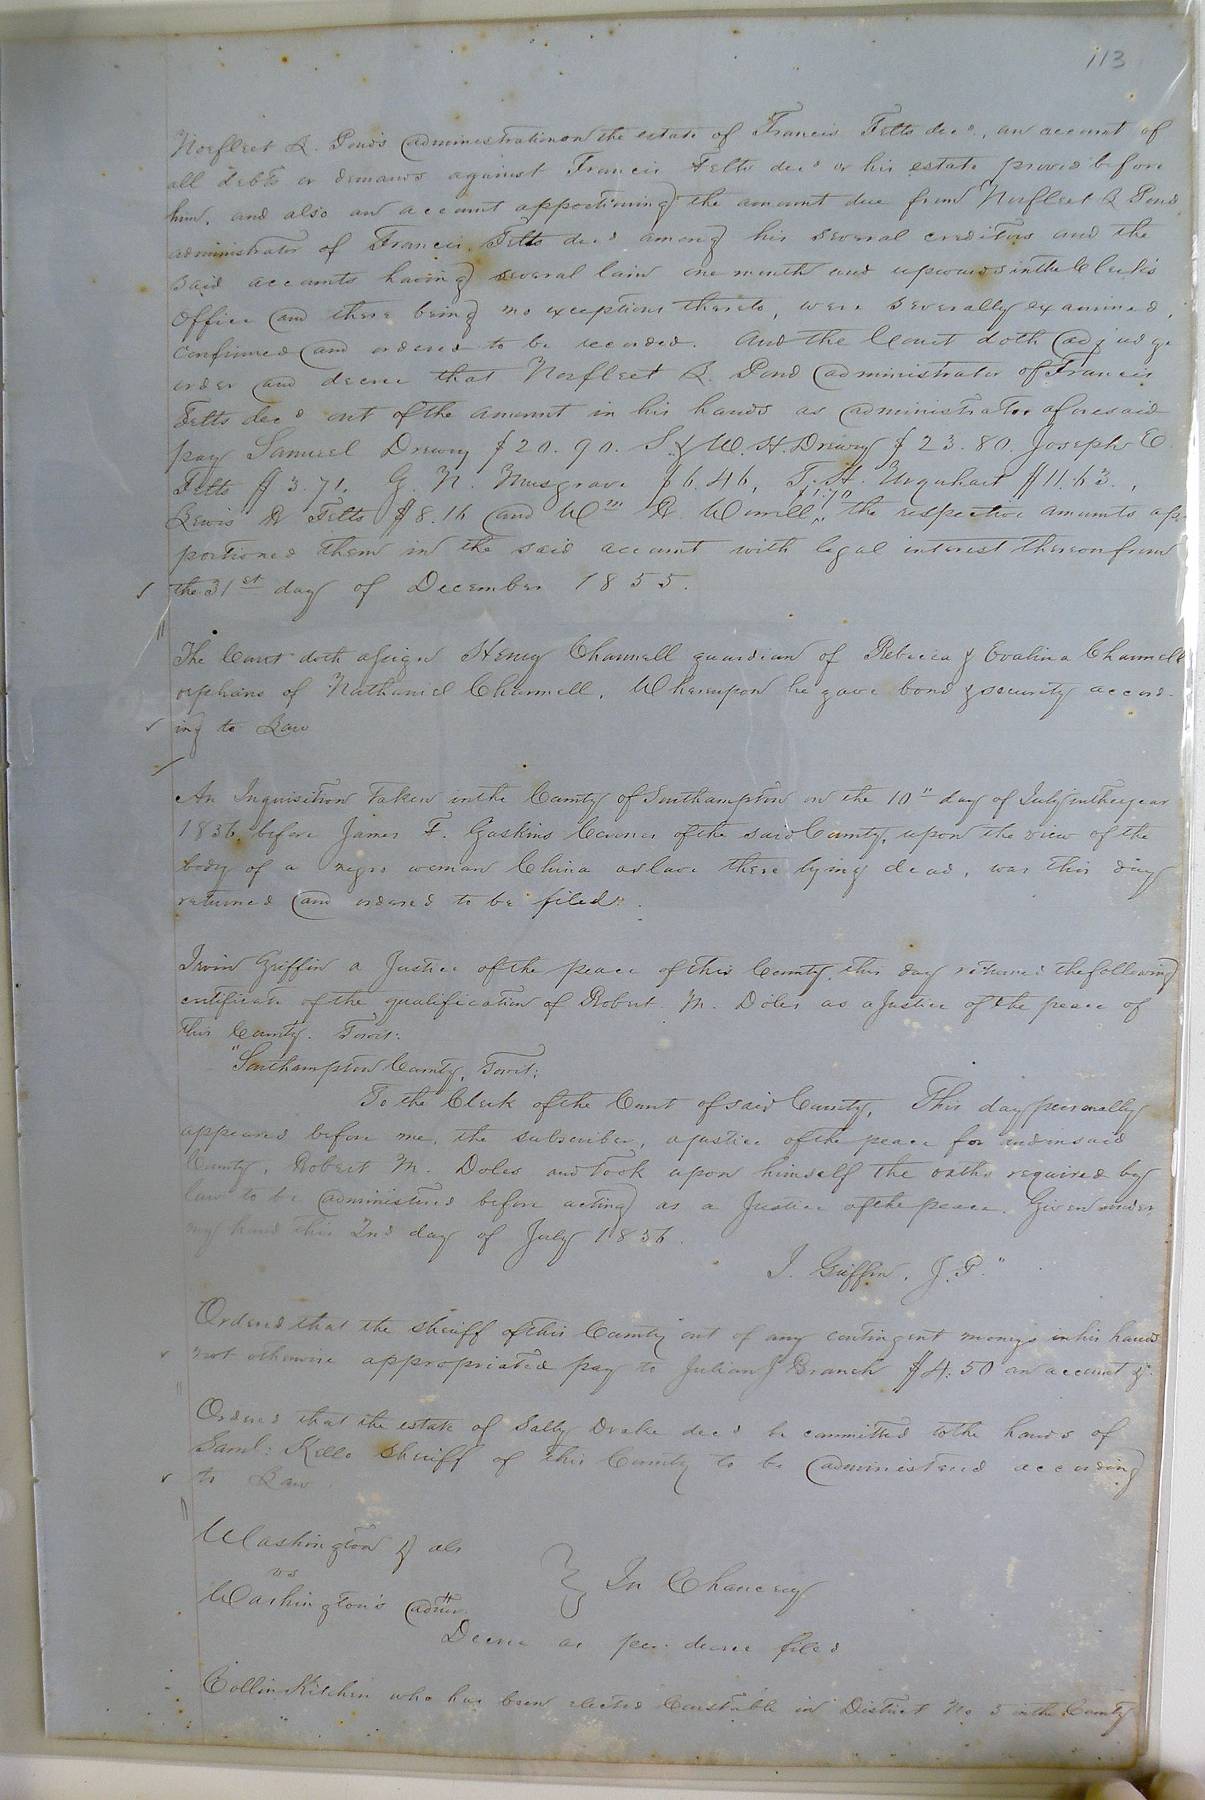 113
Norfleet R. Pond's administration on the estate of Francis Felts decd., an account of
all debts or demands against Francis Felts decd or his estate proved before
him, and also an account apportioning the amount due from Norfleet R Pond
administrator of Francis Felts decd among his several creditors and the
said accounts having several lain one month and upwards in the Clerk's
Office and there being no exceptions thereto, were severally examined,
confirmed and ordered to be recorded. And the Court doth adjudge
order and decree that Norfleet R. Pond administrator of Francis
Felts decd out of the amount in his hands as administrator aforesaid
pay Samuel Drewry $20.90. S. & W. H. Drewry $23.80. Joseph E.
Felts $3.71, G. N. Musgrave $6.46, T. H. Urquhart $11.63.,
Lewis R Felts $8.16 and Wm R. Worrell $1.70 the respective amounts ap-
portioned them in the said account with legal interest thereon from
the 31st day of December 1855.
The Court doth assign Henry Channell guardian of Rebecca & Evalina Channell
orphans of Nathaniel Channell. Whereupon he gave bond & security accord-
ing to Law
An Inquisition taken in the County of Southampton on the 10th day of July in the year
1856 before James F. Gaskins Coroner of the said County, upon the view of the
body of a negro woman China a slave there lying dead, was this day
returned and ordered to be filed.
Irwin Griffin a Justice of the peace of this County this day returned the following
certificate of the qualification of Robert M. Doles as a Justice of the peace of
this County. Towit:
"Southampton County, Towit:
To the Clerk of the Court of said County, This day personally
appeared before me, the subscriber, a justice of the peace for and in said
County, Robert M. Doles and took upon himself the oaths required by
law to be administered before acting as a Justice of the peace. Given under
my hand this 2nd day of July 1856.
I. Griffin, J.P."
Ordered that the sheriff of this County out of any contingent moneys in his hands
not otherwise appropriated pay to Julian J Branch $4.50 an account &c
Ordered that the estate of Sally Drake decd be committed to the hands of
Saml: Kello sheriff of this County to be administered according
to Law.
Washington & als
vs
Washington's admr } In Chancery
Decree as per decree filed
Collin Kitchen who has been elected Constable in District No 5 in the County